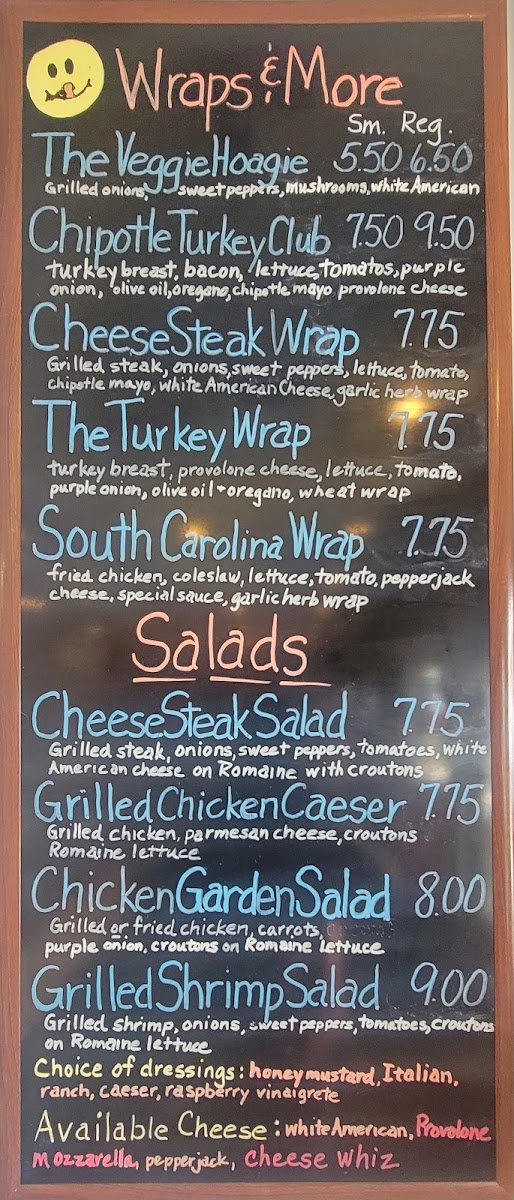 Wraps & More
Sm. Reg.
The Veggie Hoagie 5.50 6.50
Grilled onions, sweet peppers, mushrooms, white American
Chipotle Turkey Club 7.50 9.50
turkey breast, bacon, lettuce, tomatos, purple
onion, olive oil, oregano, chipotle mayo provolone cheese
Cheese Steak Wrap 7.75
Grilled steak, onions, sweet peppers, lettuce, tomato,
chipotle mayo, white American Cheese, garlic herb wrap
The Turkey Wrap 7.75
turkey breast, provolone cheese, lettuce, tomato,
purple onion, olive oil + oregano, wheat wrap
South Carolina Wrap 7.75
fried chicken, coleslaw, lettuce, tomato, pepperjack
cheese, special sauce, garlic herb wrap
Salads
Cheese Steak Salad 7.75
Grilled steak, onions, sweet peppers, tomatoes, white
American cheese on Romaine with croutons
Grilled Chicken Caeser 7.75
Grilled chicken, parmesan cheese, croutons
Romaine lettuce
Chicken Garden Salad 8.00
Grilled or fried chicken, carrots,
purple onion, croutons on Romaine lettuce
Grilled Shrimp Salad 9.00
Grilled shrimp, onions, sweet peppers, tomatoes, croutons
on Romaine lettuce
Choice of dressings: honey mustard, Italian,
ranch, caeser, raspberry vinaigrete
Available Cheese: white American, Provolone
mozzarella, pepperjack, cheese whiz